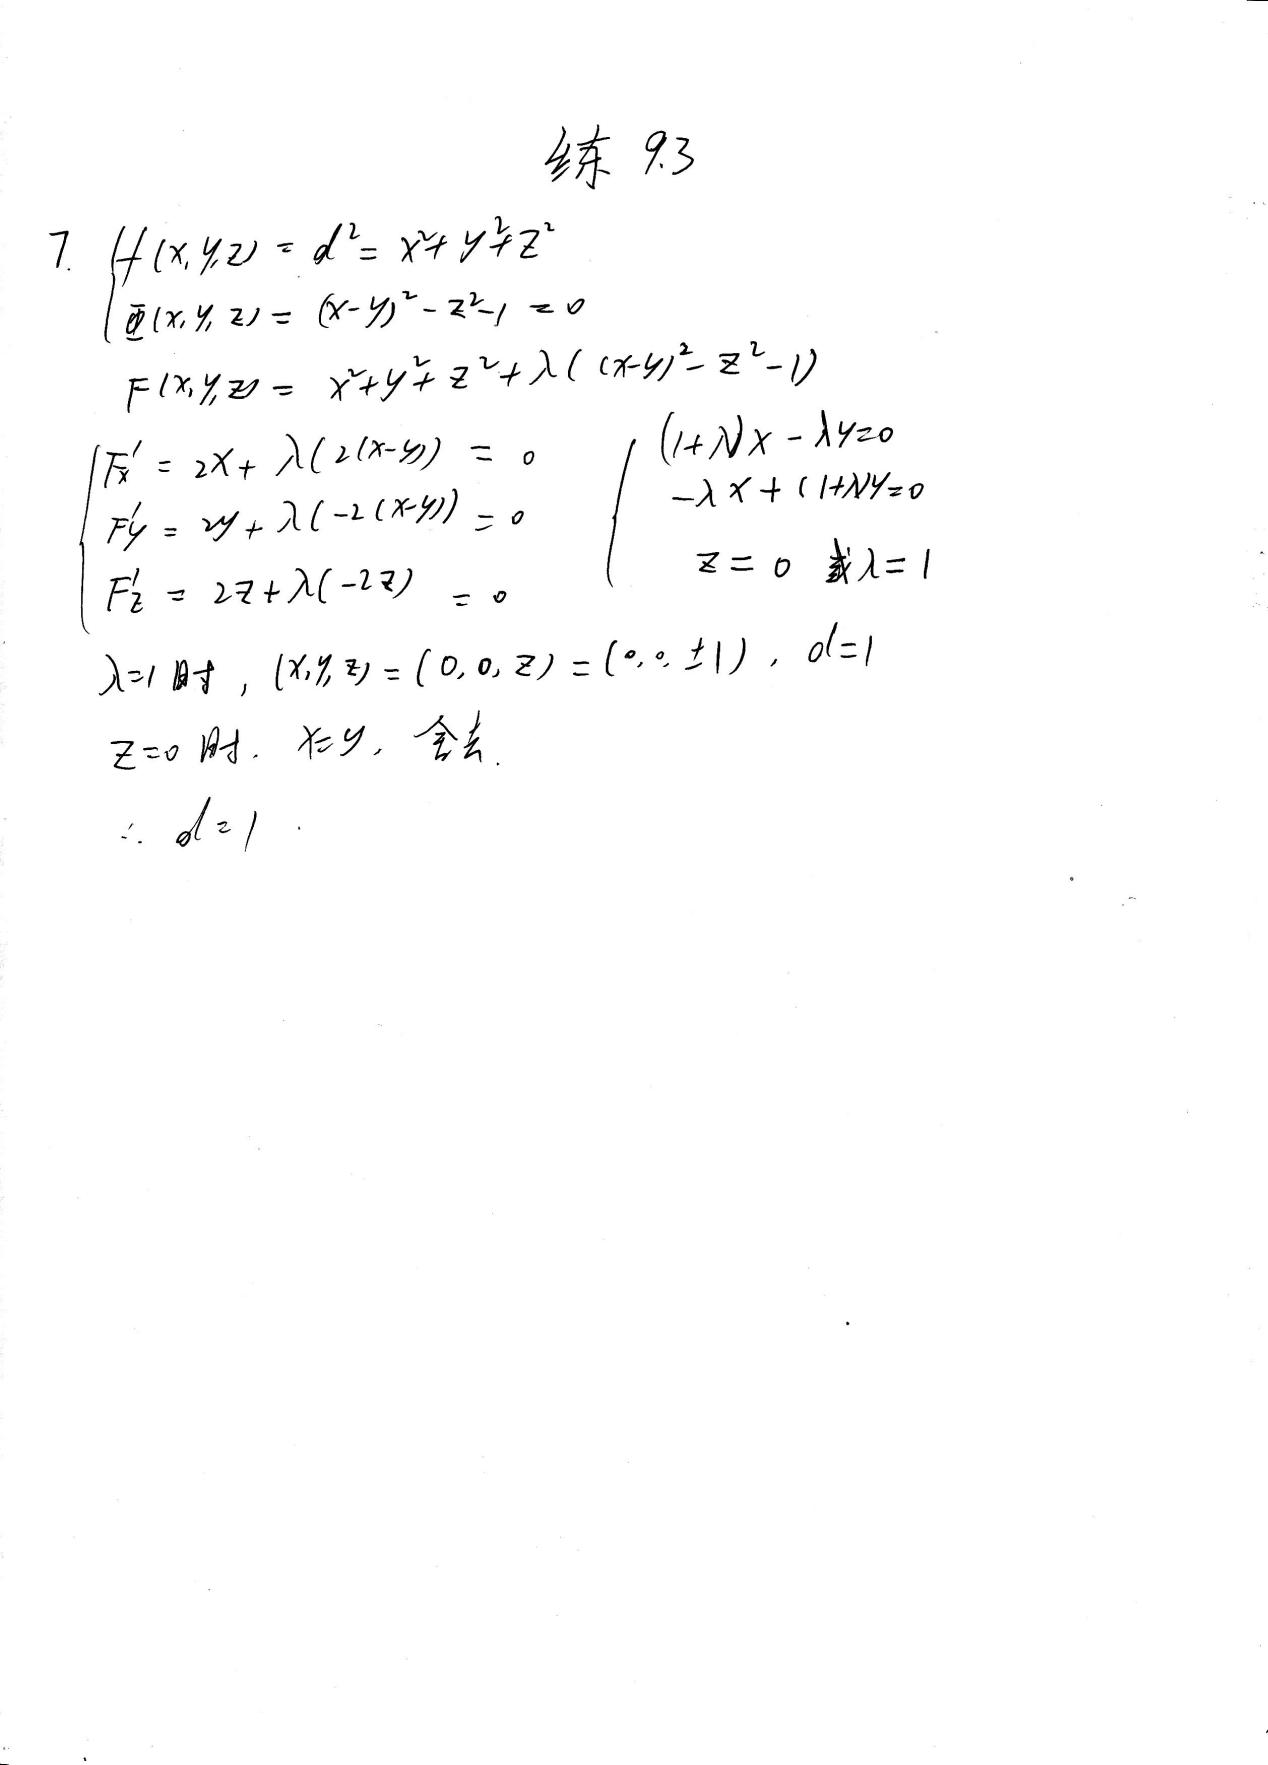 练 9.3
7. H(x,y,z) = d² = x²+y²+z²
Φ(x,y,z) = (x-y)²-z²-1 = 0
F(x,y,z) = x²+y²+z²+λ((x-y)²-z²-1)
F'x = 2x+λ(2(x-y)) = 0 (1+λ)x-λy=0
F'y = 2y+λ(-2(x-y)) = 0 -λx+(1+λ)y=0
F'z = 2z+λ(-2z) = 0 z=0 或λ=1
λ=1时, (x,y,z)=(0,0,z)=(0,0,±1), d=1
z=0时. x=y, 舍去.
∴ d=1.